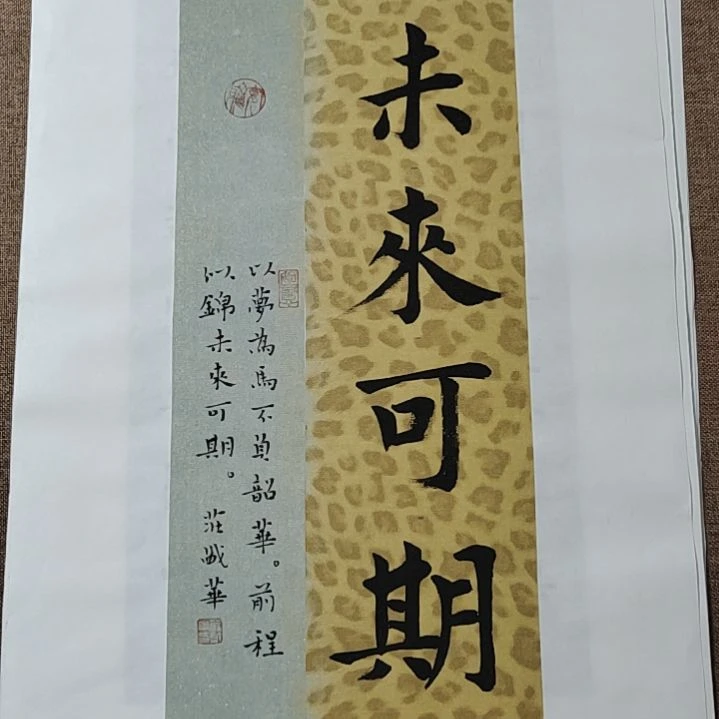 未來可期
以夢為馬不負韶華。前程
以錦未來可期。 莊
華